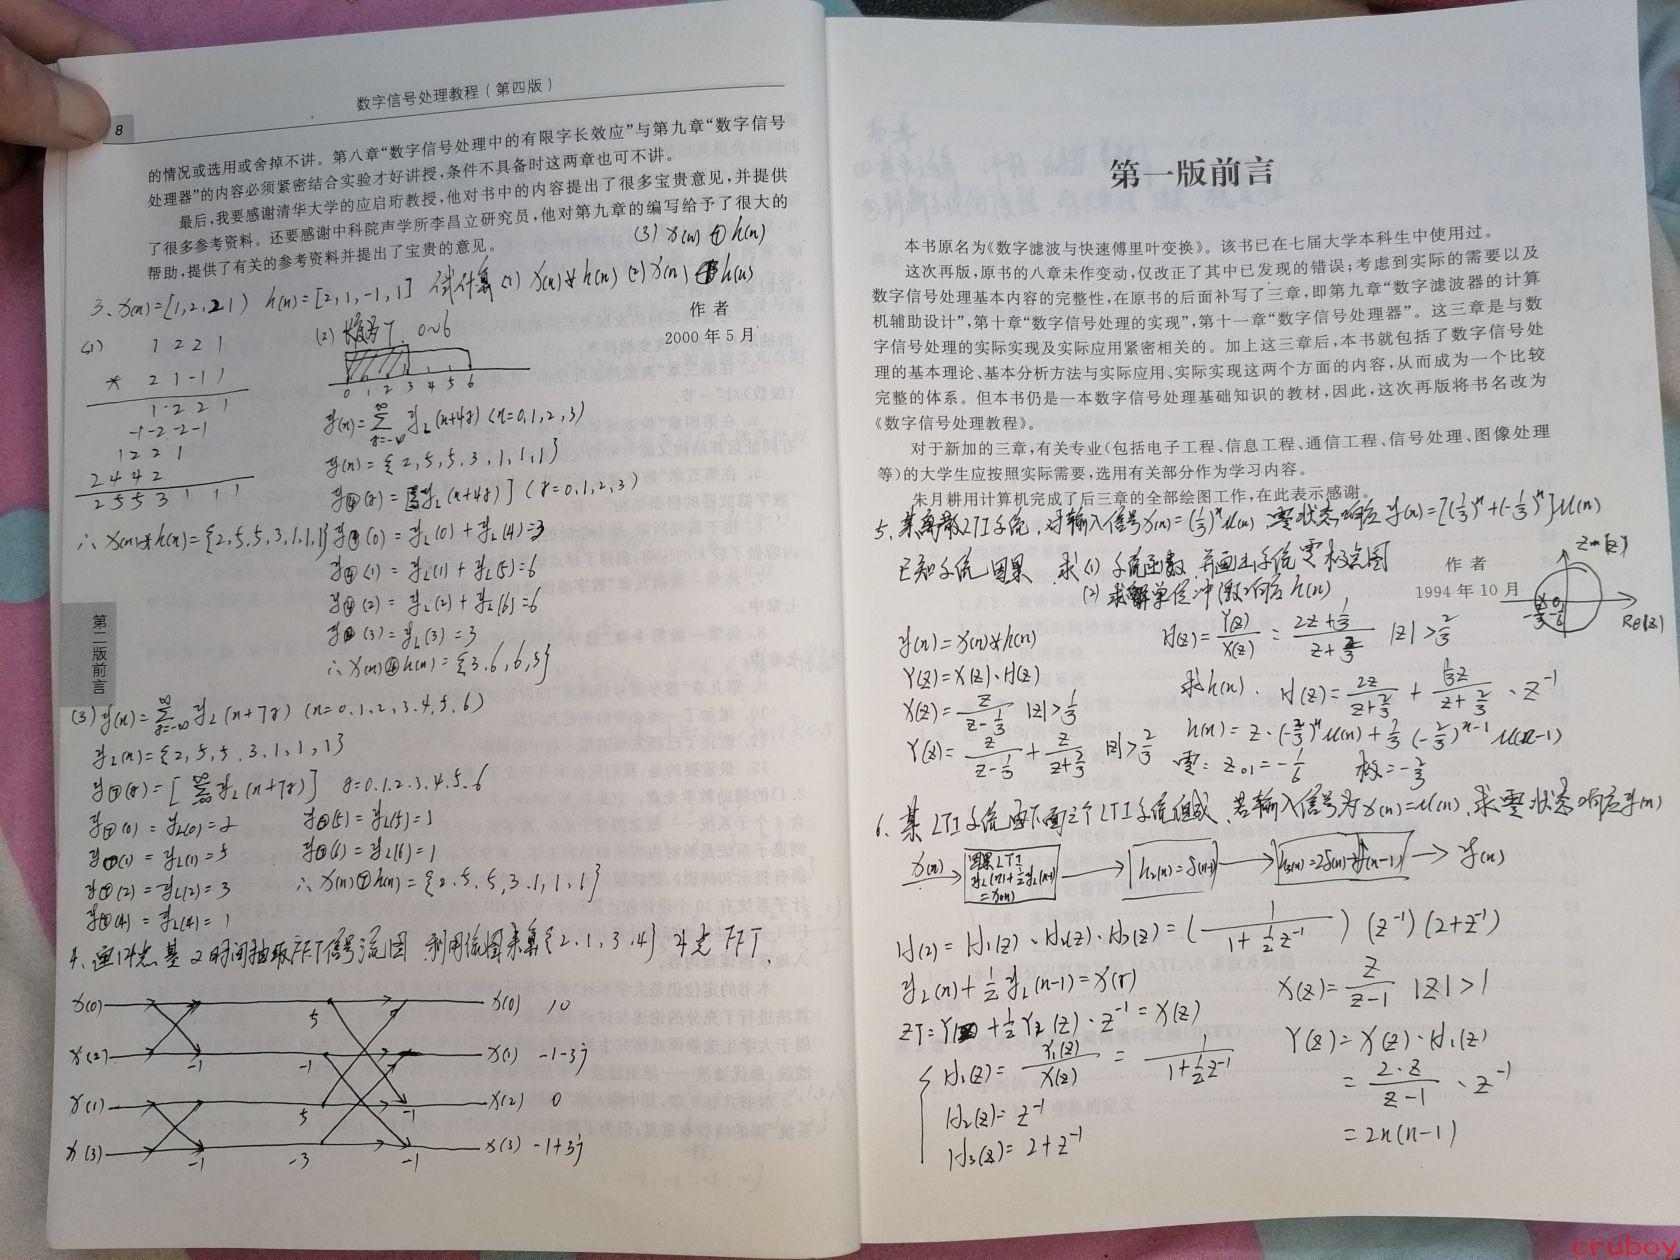 数字信号处理教程(第四版)
8
的情况或选用或舍掉不讲。第八章“数字信号处理中的有限字长效应”与第九章“数字信号
处理器”的内容必须紧密结合实验才好讲授,条件不具备时这两章也可不讲。
最后,我要感谢清华大学的应启珩教授,他对书中的内容提出了很多宝贵意见,并提供
了很多参考资料。还要感谢中科院声学所李昌立研究员,他对第九章的编写给予了很大的
帮助,提供了有关的参考资料并提出了宝贵的意见。
(3) x(n) ⑦ h(n)
3、x(n)=[1,2,2,1) h(n)=[2,1,-1,1] 试计算 (1) x(n)*h(n) (2) x(n) ④ h(n)
作 者
2000 年 5 月
(1) 1 2 2 1
* 2 1 -1 1
1 2 2 1
-1 -2 -2 -1
1 2 2 1
2 4 4 2
2 5 5 3 1 1 1
∴ x(n)*h(n)={2,5,5,3,1,1,1}
(2) 长度为7 0~6
0 1 2 3 4 5 6
y(n)=∑ yL(n+4r) (n=0,1,2,3)
y(n)={2,5,5,3,1,1,1}
y④(r)=[yL(n+4r)] (r=0,1,2,3)
y④(0)=yL(0)+yL(4)=3
y④(1)=yL(1)+yL(5)=6
y④(2)=yL(2)+yL(6)=6
y④(3)=yL(3)=3
∴ x(n)④h(n)={3,6,6,3}
第二版前言
(3) y(n)=∑ yL(n+7r) (n=0.1.2.3.4.5.6)
yL(n)={2,5,5,3,1,1,1}
y⑦(r)=[∑ yL(n+7r)] r=0.1.2.3.4.5.6
y⑦(0)=yL(0)=2 y⑦(5)=yL(5)=1
y⑦(1)=yL(1)=5 y⑦(6)=yL(6)=1
y⑦(2)=yL(2)=3 ∴ x(n)⑦h(n)={2.5.5,3.1,1,1}
y⑦(4)=yL(4)=1
4、画4点基2时间抽取FFT信号流图 利用流图来算{2.1,3,4} 4点FFT、
x(0) 5 X(0) 10
x(2) -1 -1 X(1) -1-3j
x(1) 5 -1 X(2) 0
x(3) -1 -3 -1 X(3) -1+3j
第一版前言
本书原名为《数字滤波与快速傅里叶变换》。该书已在七届大学本科生中使用过。
这次再版,原书的八章未作变动,仅改正了其中已发现的错误;考虑到实际的需要以及
数字信号处理基本内容的完整性,在原书的后面补写了三章,即第九章“数字滤波器的计算
机辅助设计”,第十章“数字信号处理的实现”,第十一章“数字信号处理器”。这三章是与数
字信号处理的实际实现及实际应用紧密相关的。加上这三章后,本书就包括了数字信号处
理的基本理论、基本分析方法与实际应用、实际实现这两个方面的内容,从而成为一个比较
完整的体系。但本书仍是一本数字信号处理基础知识的教材,因此,这次再版将书名改为
《数字信号处理教程》。
对于新加的三章,有关专业(包括电子工程、信息工程、通信工程、信号处理、图像处理
等)的大学生应按照实际需要,选用有关部分作为学习内容。
朱月耕用计算机完成了后三章的全部绘图工作,在此表示感谢。
5、某离散LTI系统,对输入信号x(n)=(1/3)ⁿu(n) 零状态响应 y(n)=[(1/3)ⁿ+(-2/3)ⁿ]u(n)
已知系统因果 求 (1) 系统函数 并画出系统零极点图
(2) 求解单位冲激响应h(n)
作 者
1994 年 10 月
Im[z]
Re[z]
y(n)=x(n)*h(n) H(z)=Y(z)/X(z)=(2z+1/3)/(z+2/3) |z|>2/3
Y(z)=X(z)·H(z) 求h(n). H(z)=2z/(z+2/3) + (1/3 z)/(z+2/3) · z⁻¹
X(z)=z/(z-1/3) |z|>1/3 h(n)=2·(-2/3)ⁿu(n)+1/3(-2/3)ⁿ⁻¹u(n-1)
Y(z)=z/(z-1/3)+z/(z+2/3) |z|>2/3 零: z01=-1/6 极=-2/3
6、某LTI系统由下面三个LTI系统组成、若输入信号为x(n)=u(n)、求零状态响应y(n)
x(n) 因果LTI yL(n)+1/2yL(n-1)=x(n) h2(n)=δ(n-1) h3(n)=2δ(n)+δ(n-1) y(n)
H(z)=H1(z)·H2(z)·H3(z)=(1/(1+1/2z⁻¹)) (z⁻¹)(2+z⁻¹)
yL(n)+1/2yL(n-1)=x(r) X(z)=z/(z-1) |z|>1
ZT: +1/2YL(z)·z⁻¹=X(z) Y(z)=X(z)·H1(z)
H1(z)=Y1(z)/X(z)=1/(1+1/2z⁻¹) =2·z/(z-1)·z⁻¹
H2(z)=z⁻¹ =2u(n-1)
H3(z)=2+z⁻¹
cruboy